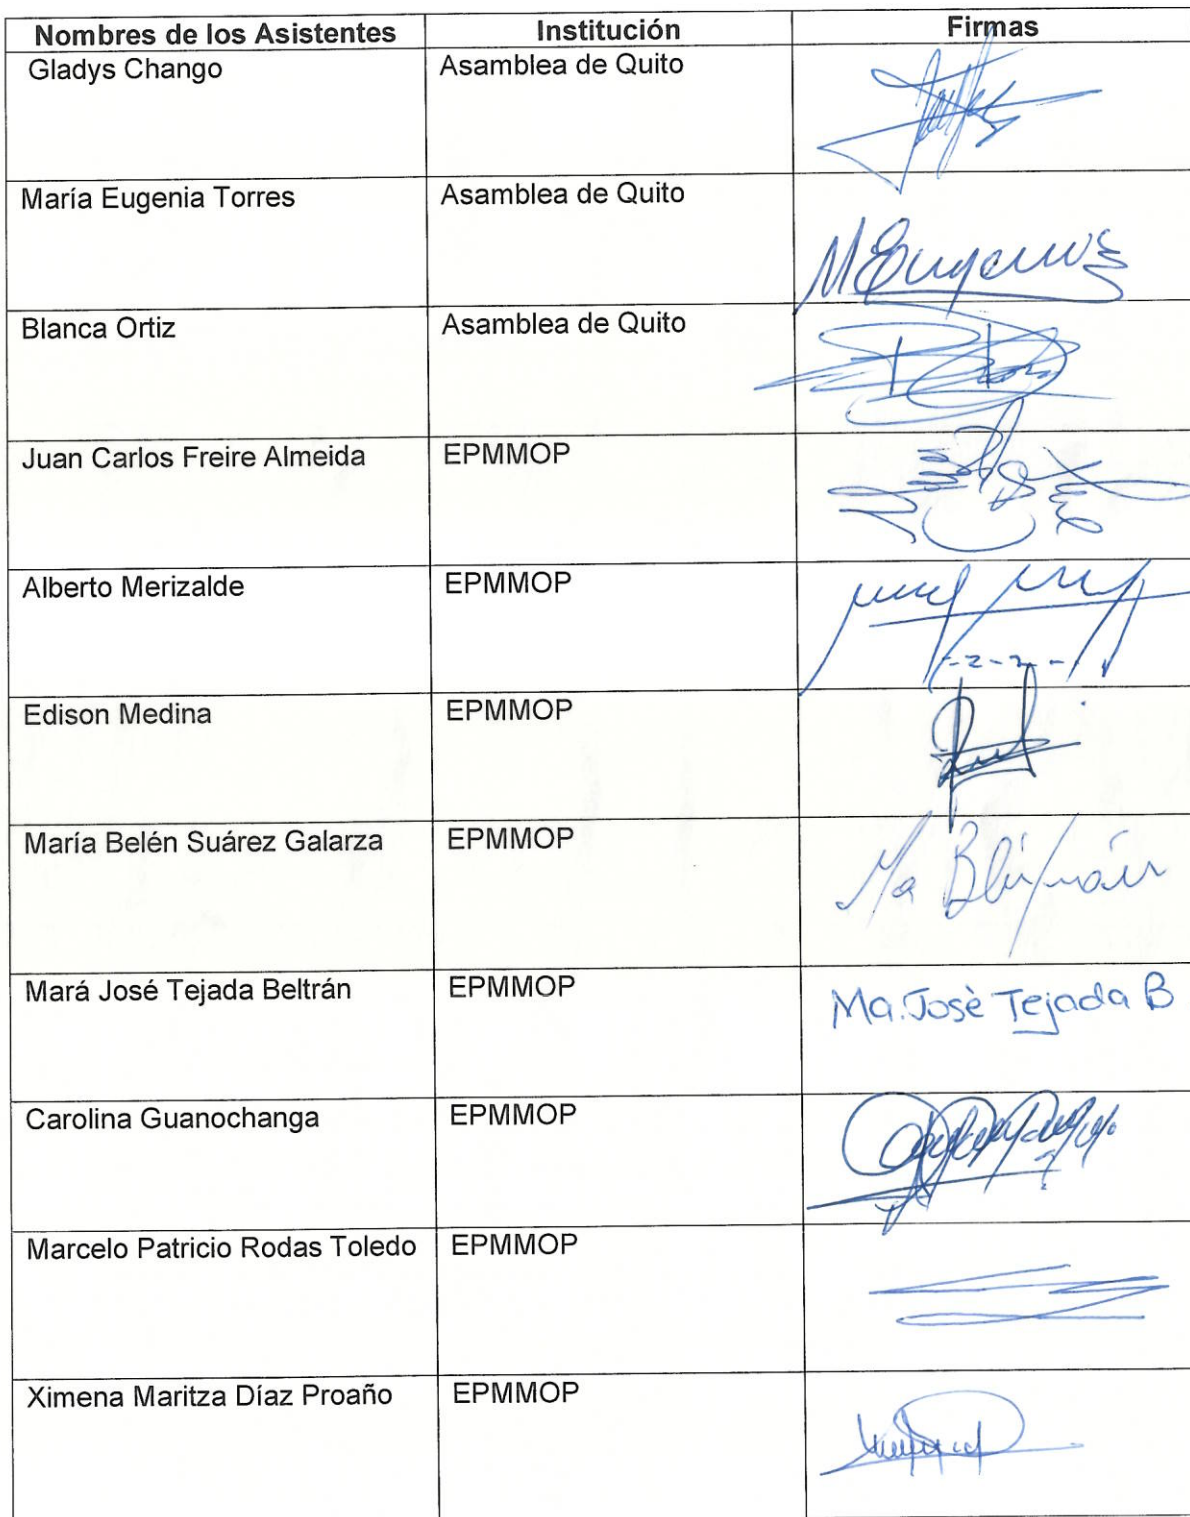 Nombres de los Asistentes Institución Firmas
Gladys Chango Asamblea de Quito
María Eugenia Torres Asamblea de Quito
M Eugenia
Blanca Ortiz Asamblea de Quito
Juan Carlos Freire Almeida EPMMOP
Alberto Merizalde EPMMOP
Edison Medina EPMMOP
María Belén Suárez Galarza EPMMOP
Mará José Tejada Beltrán EPMMOP Ma. Josè Tejada B
Carolina Guanochanga EPMMOP
Marcelo Patricio Rodas Toledo EPMMOP
Ximena Maritza Díaz Proaño EPMMOP